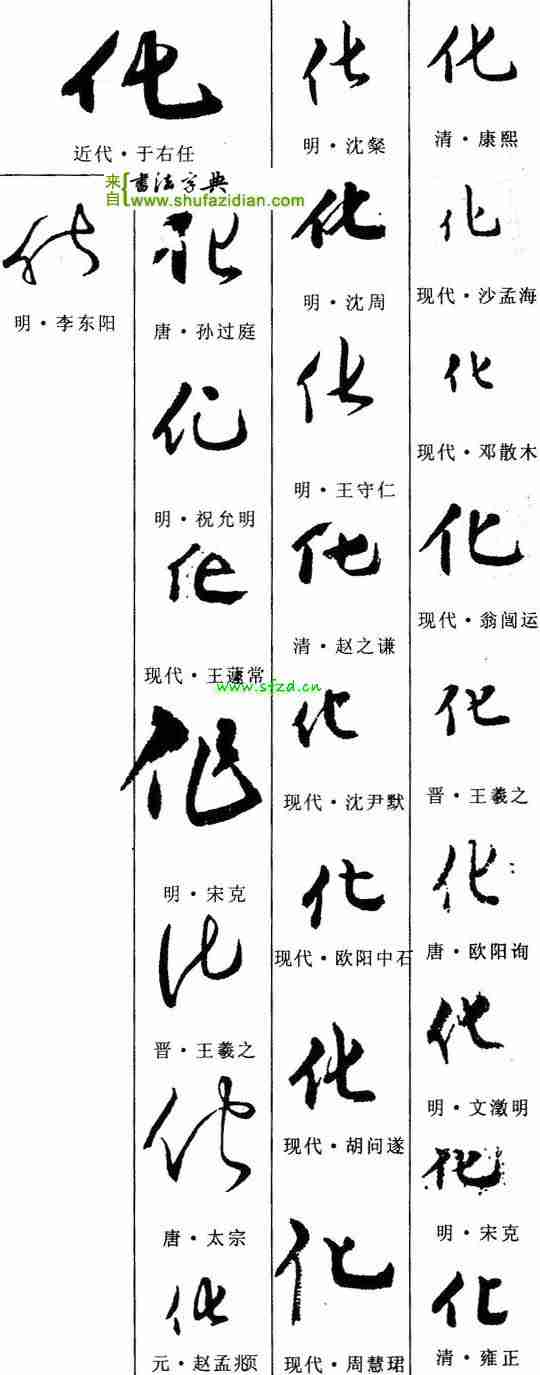 化
清·康熙
化
现代·沙孟海
化
现代·邓散木
化
现代·翁闿运
化
晋·王羲之
化
唐·欧阳询
化
明·文澂明
化
明·宋克
化
清·雍正
化
明·沈粲
化
明·沈周
化
明·王守仁
化
清·赵之谦
化
现代·沈尹默
化
现代·欧阳中石
化
现代·胡问遂
化
现代·周慧珺
化
近代·于右任
来自 书法字典
www.shufazidian.com
化
唐·孙过庭
化
明·祝允明
化
现代·王蘧常
www.sfzd.cn
化
明·宋克
化
晋·王羲之
化
唐·太宗
化
元·赵孟頫
化
明·李东阳